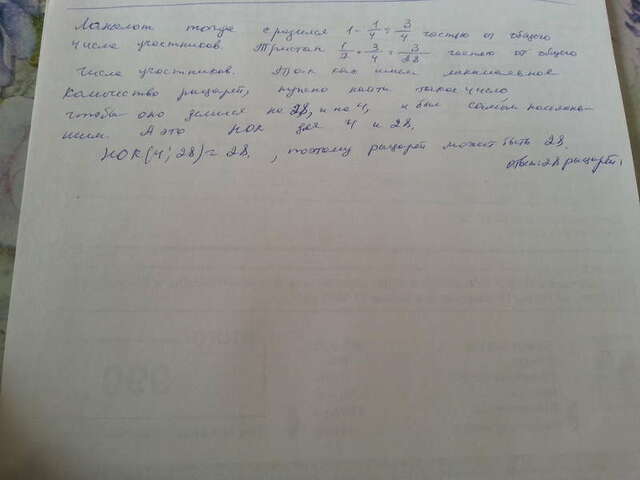 Ланселот тогда сразился 1 - 1/4 = 3/4 частью от общего
числа участников. Тристан 1/7 * 3/4 = 3/28 частью от общего
числа участников. Так как
количество рыцарей, нужно найти такое число
чтобы оно делилось на 28, и на 4, и был самым наимень-
шим. А это НОК для 4 и 28.
НОК(4; 28) = 28, поэтому рыцарей может быть 28.
Ответ: 28 рыцарей.